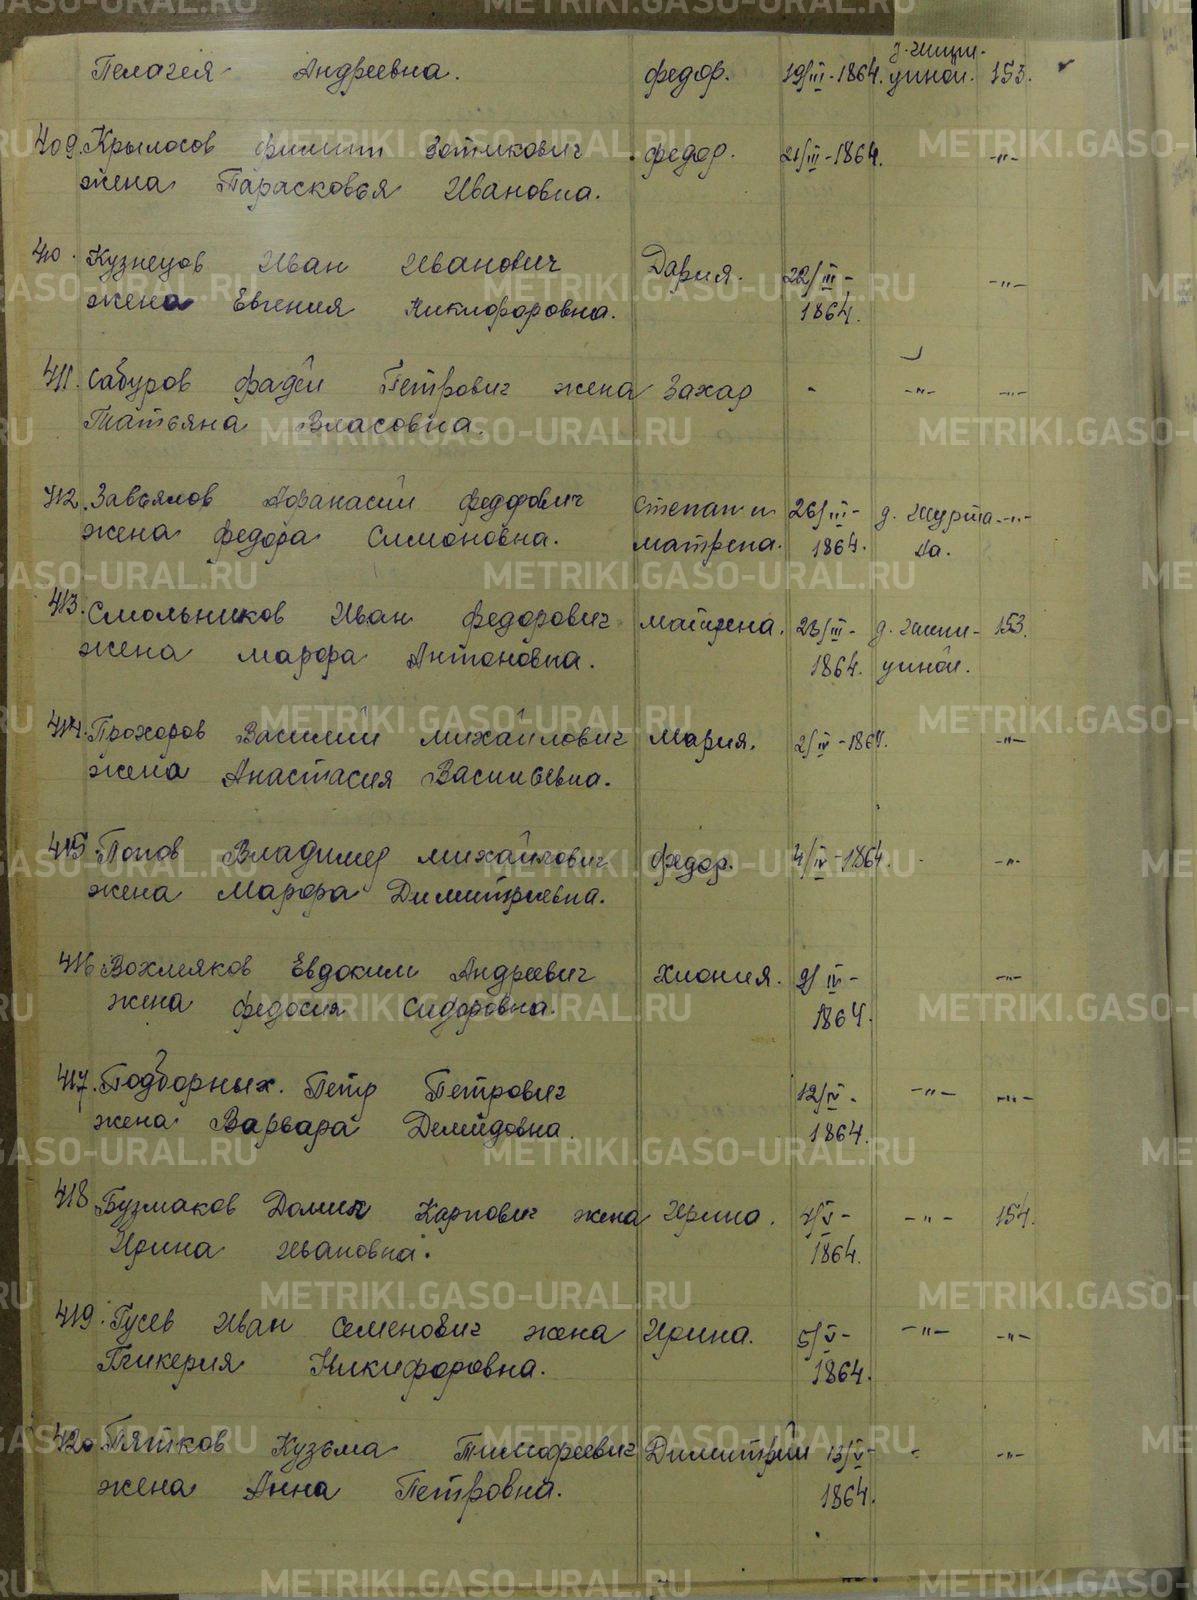 Пелагея Андреевна. Федор. 19/III-1864. 153.
409. Крылосов Филипп Зотикович Федор. 21/III-1864. -"-
жена Парасковья Ивановна.
410. Кузнецов Иван Иванович Дария. 22/III- -"-
жена Евгения Никифоровна. 1864.
411. Сабуров Фадей Петрович жена Захар - -"- -"-
Татьяна Власовна.
412. Завьялов Афанасий Федорович Степан и 26/III- д. -"-
жена Федора Симоновна. Матрена. 1864.
413. Смольников Иван Федорович Матрена. 23/III- д. 153.
жена Марфа Антоновна. 1864.
414. Прохоров Василий Михайлович Мария. 2/IV-1864. -"-
жена Анастасия Васильевна.
415. Попов Владимер Михайлович Федор. 4/IV-1864. -"-
жена Марфа Димитриевна.
416. Вохмяков Евдоким Андреевич Хиония. 9/IV- -"-
жена Федосия Сидоровна. 1864.
417. Подборных. Петр Петрович 12/IV- -"- -"-
жена Варвара Демидовна. 1864.
418 Бузмаков Карпович жена Ирина. -"- 154.
Ирина Ивановна. 1864.
419. Гусев Иван Семенович жена Ирина. 5/V- -"- -"-
Гликерия Никифоровна. 1864.
420. Пятков Кузьма Тимофеевич Димитрий 13/V- -"-
жена Анна Петровна. 1864.
METRIKI.GASO-URAL.RU